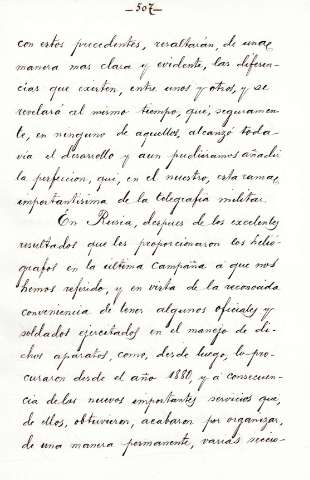 -507-
con estos precedentes, resaltarán, de una
manera mas clara y evidente, las diferen-
cias que existen, entre unos y otros, y se
revelará al mismo tiempo, que, seguramen-
te, en ninguno de aquellos, alcanzó toda-
via el desarrollo y aun pudieramos añadir
la perfeccion, que, en el nuestro, esta rama
importantisima de la telegrafia militar.
En Rusia, despues de los excelentes
resultados que les proporcionaron los helió-
grafos en la última campaña a que nos
hemos referido, y en vista de la reconocida
conveniencia de tener algunos oficiales y
soldados ejercitados en el manejo de di-
chos aparatos, como, desde luego, lo pro-
curaron desde el año 1880, y á consecuen-
cia de los nuevos importantes servicios que,
de ellos, obtuvieron, acabaron por organizar,
de una manera permanente, varias seccio-